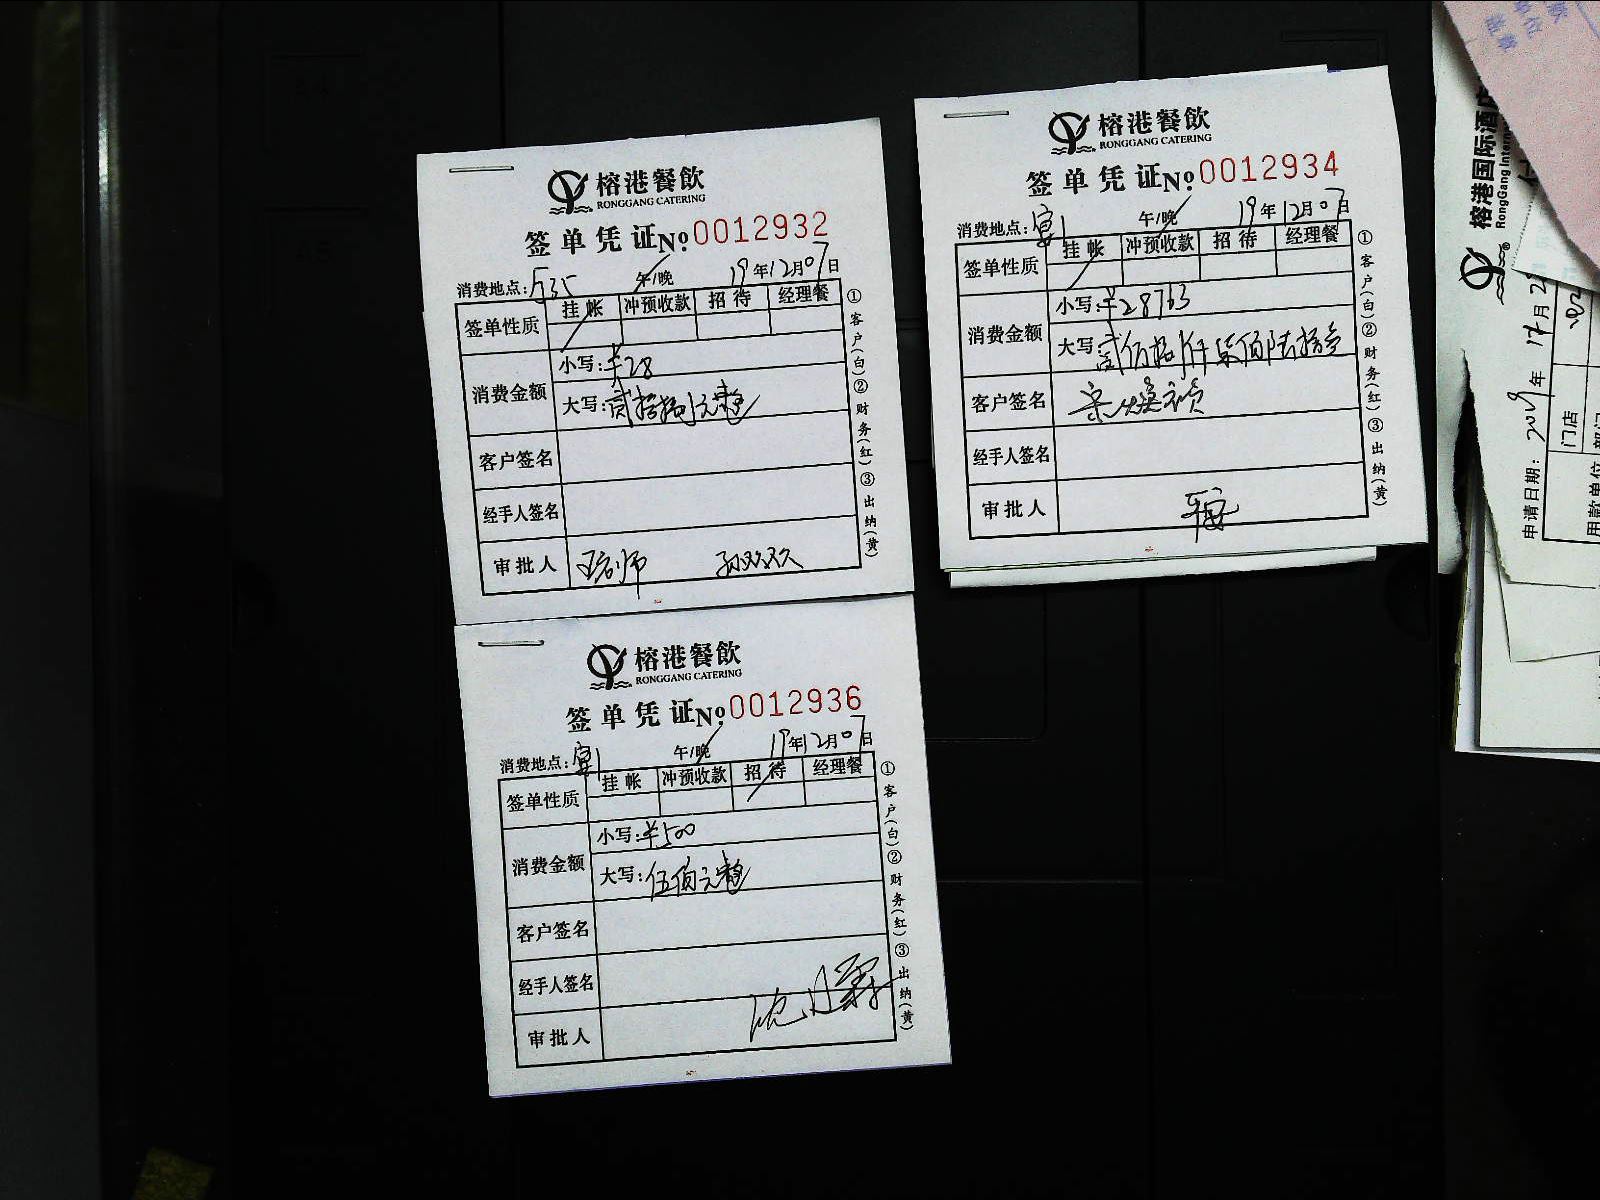 榕港餐飲
RONGGANG CATERING
签单凭证No.0012932
消费地点: 午/晚 19年12月07日
签单性质 挂帐 冲预收款 招待 经理餐
消费金额 小写:¥28
大写:贰拾捌元整
客户签名
经手人签名
审批人 孙双双
①客户(白)②财务(红)③出纳(黄)
榕港餐飲
RONGGANG CATERING
签单凭证No.0012934
消费地点:宴1 午/晚 19年12月07日
签单性质 挂帐 冲预收款 招待 经理餐
消费金额 小写:¥28763
大写:
客户签名
经手人签名
审批人
①客户(白)②财务(红)③出纳(黄)
榕港餐飲
RONGGANG CATERING
签单凭证No.0012936
消费地点:宴1 午/晚 19年12月07日
签单性质 挂帐 冲预收款 招待 经理餐
消费金额 小写:¥500
大写:伍佰元整
客户签名
经手人签名
审批人
①客户(白)②财务(红)③出纳(黄)
榕港国际酒店
RongGang Intern
申请日期: 2019年
门店
用款单位